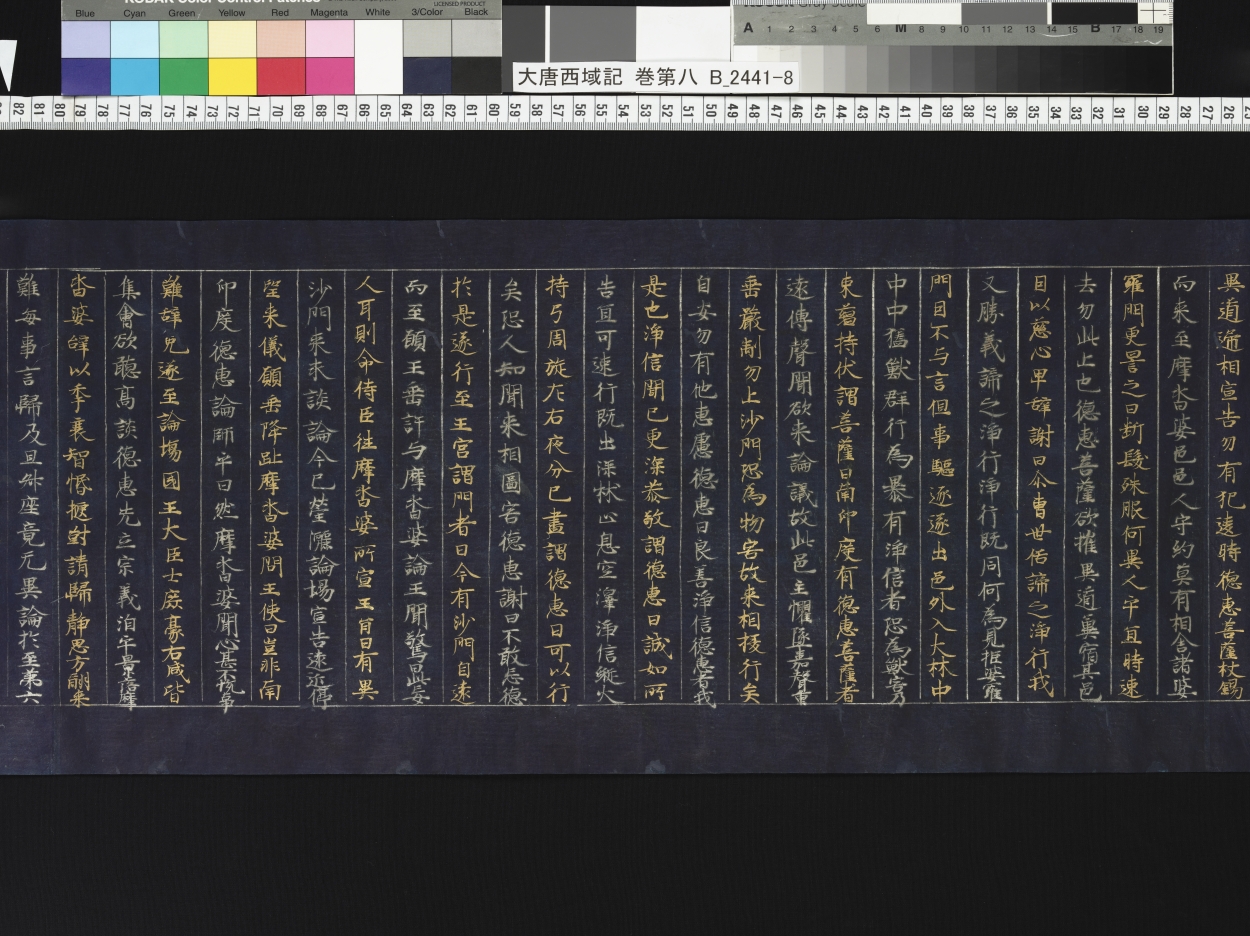 KODAK Color Control Patches
LICENSED PRODUCT
Blue Cyan Green Yellow Red Magenta White 3/Color Black
A 1 2 3 4 5 6 M 8 9 10 11 12 13 14 15 B 17 18 19
大唐西域記 巻第八 B_2441-8
82 81 80 79 78 77 76 75 74 73 72 71 70 69 68 67 66 65 64 63 62 61 60 59 58 57 56 55 54 53 52 51 50 49 48 47 46 45 44 43 42 41 40 39 38 37 36 35 34 33 32 31 30 29 28 27 26
異道遞相宣告勿有犯違時德惠善薩杖錫
而來至摩沓婆邑邑人守約莫有相舍諸婆
羅門更詈之曰斷髮殊服何異人乎宜時速
去勿此止也德惠善薩欲摧異道冀宿其邑
曰以慈心卑辭謝曰尒曹世俗諦之淨行我
又勝義諦之淨行淨行既同何為見拒婆羅
門曰不与言但事驅逐逐出邑外入大林中
中中猛獸群行為暴有淨信者恐為獸害乃
束蘊持伏謂善薩曰南印度有德惠善薩者
遠傳聲聞欲來論議故此邑主懼墜嘉聲重
垂嚴制勿止沙門恐為物害故來相援行矣
自安勿有他慮德惠曰良善淨信德惠者我
是也淨信聞已更深恭敬謂德惠曰誠如所
告宜可速行既出深林止息空澤淨信縱火
持弓周旋左右夜分已盡謂德惠曰可以行
矣恐人知聞來相圖害德惠謝曰不敢忘德
於是遂行至王宮謂門者曰今有沙門自遠
而至願王垂許与摩沓婆論王聞驚曰此妄
人耳則命侍臣往摩沓婆所宣王旨曰有異
沙門來求談論今已瑩灑論場宣告遠近佇
望來儀願垂降趾摩沓婆問王使曰豈非南
印度德惠論師乎曰然摩沓婆聞心甚不悅事
難辭免遂至論場國王大臣士庶豪右咸皆
集會欲聽高談德惠先立宗義洎乎景落摩
沓婆辭以季衰智惛捷對請歸靜思方酬來
難每事言歸及旦昇座竟无異論於至第六